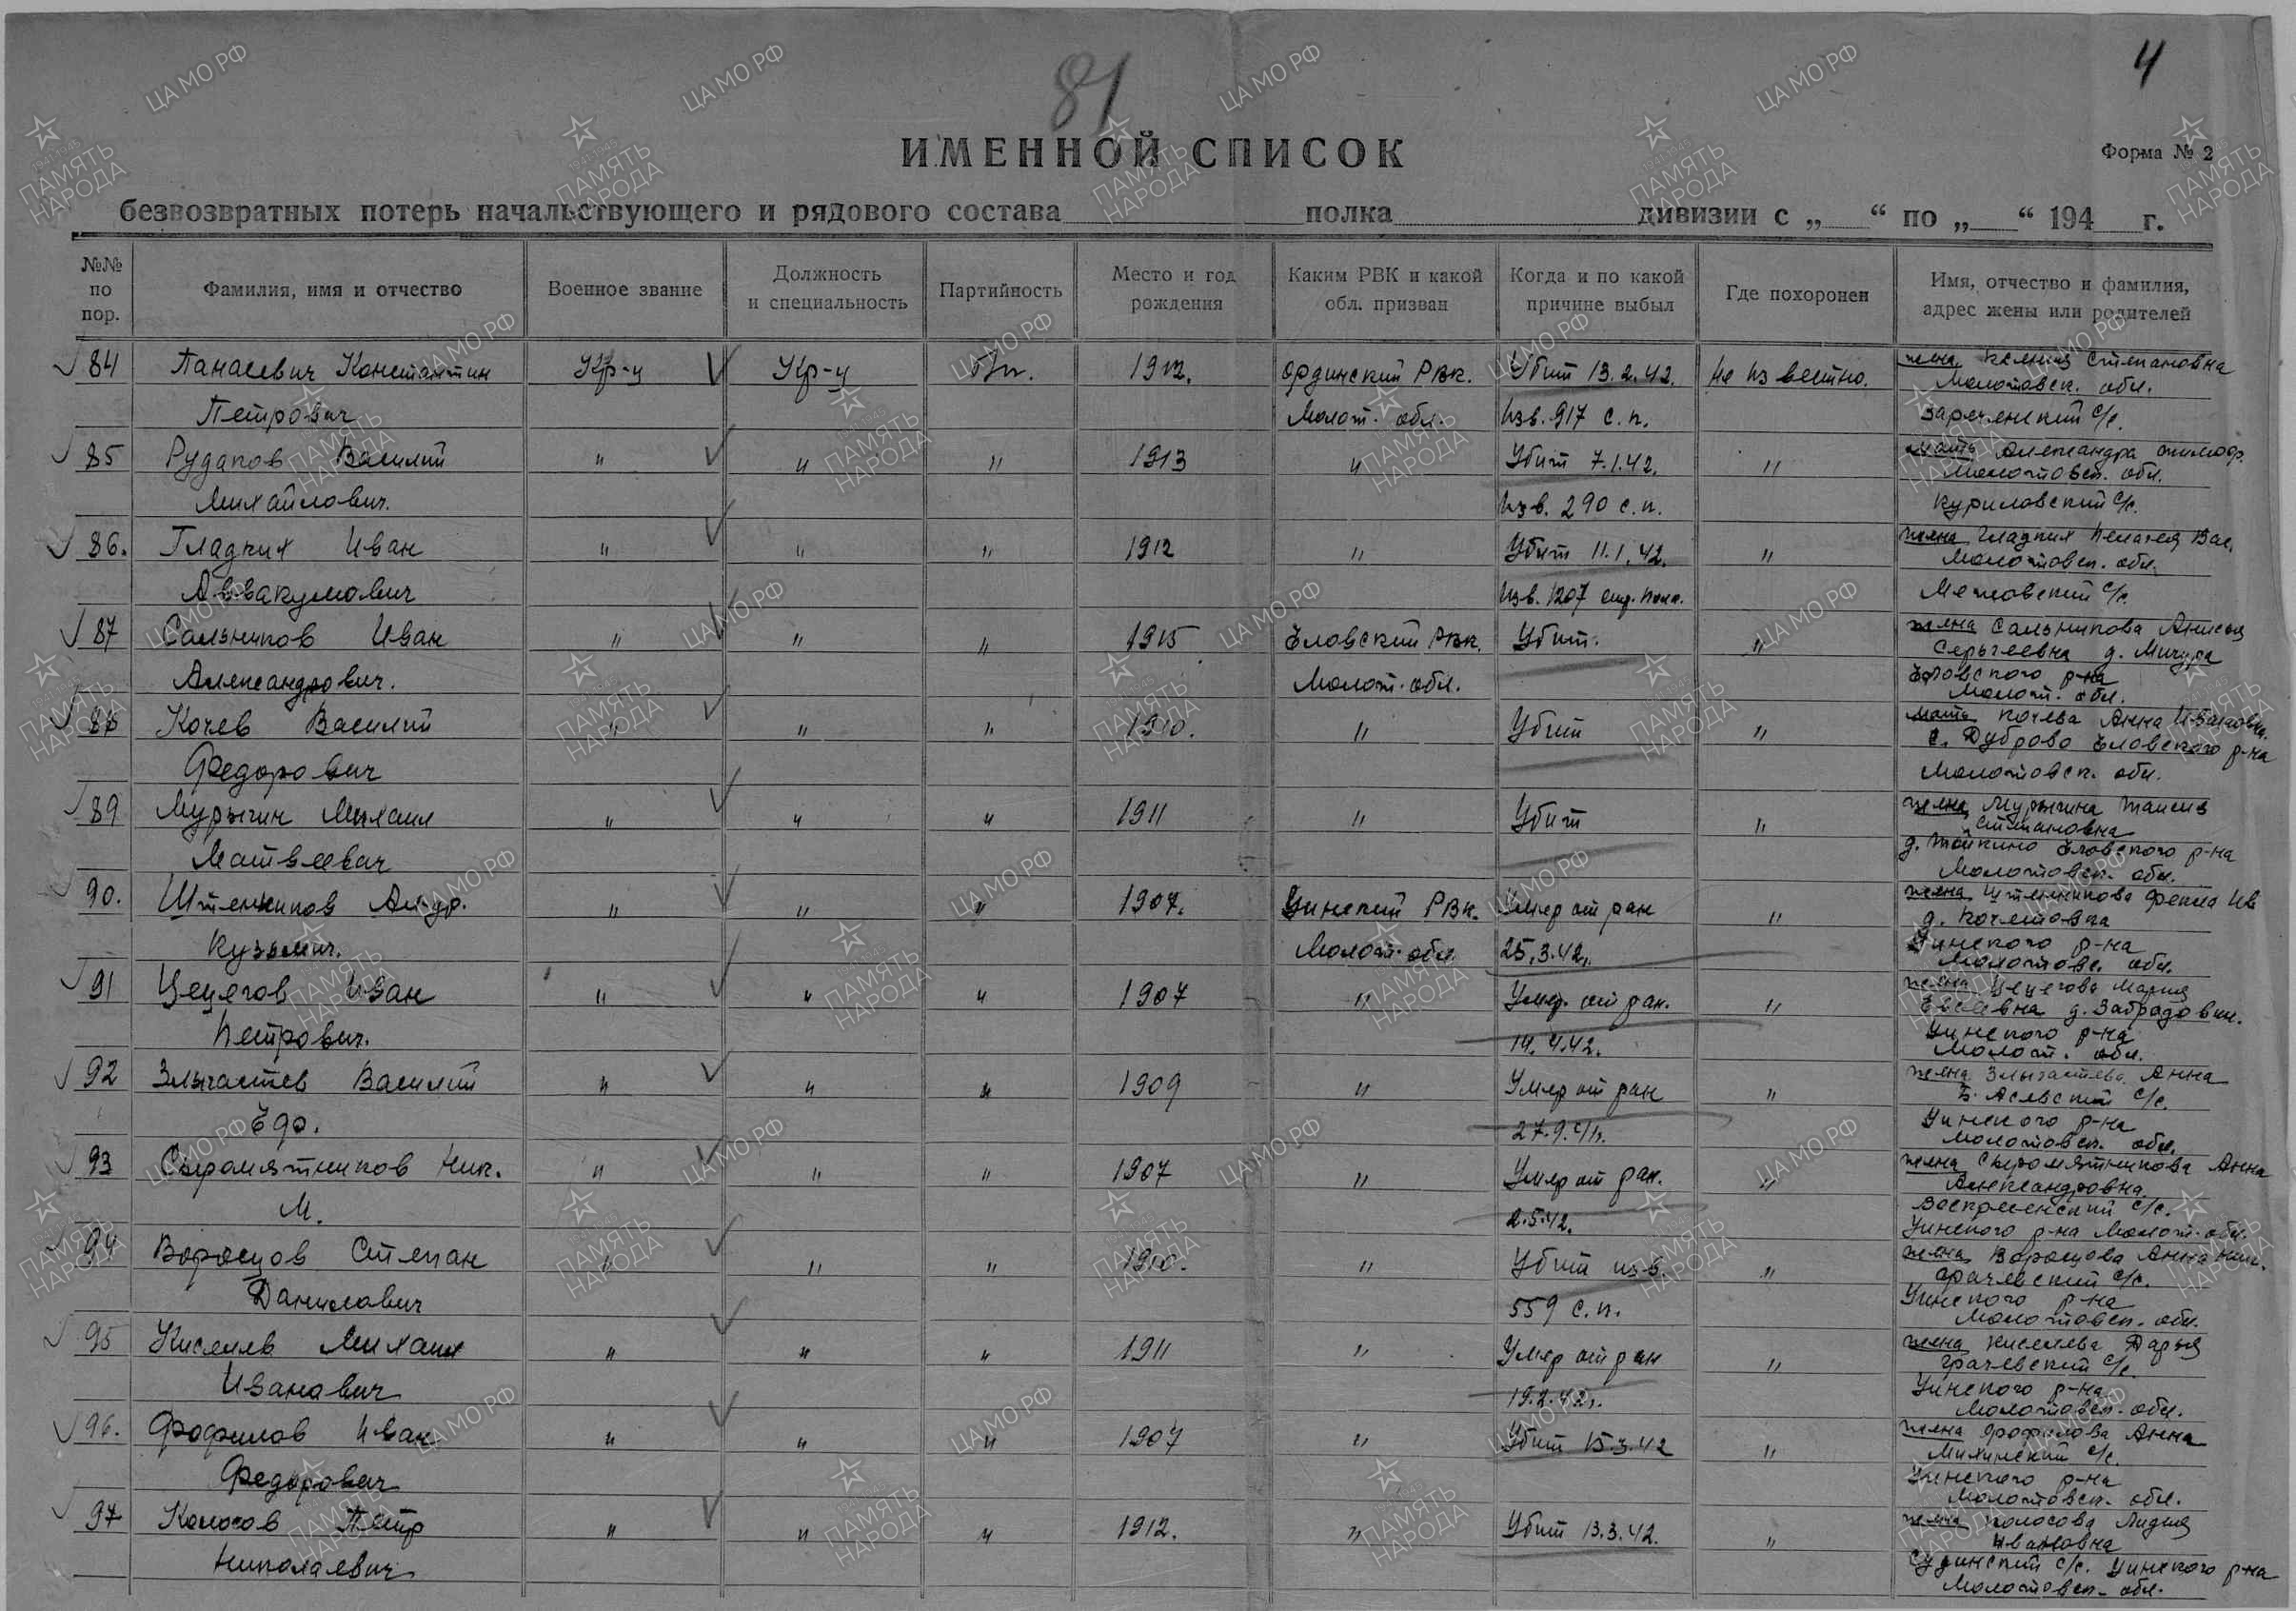 81
4
ИМЕННОЙ СПИСОК
Форма № 2
безвозвратных потерь начальствующего и рядового состава полка дивизии с „ “ по „ “ 194 г.
№№ по пор. Фамилия, имя и отчество Военное звание Должность и специальность Партийность Место и год рождения Каким РВК и какой обл. призван Когда и по какой причине выбыл Где похоронен Имя, отчество и фамилия, адрес жены или родителей
84 Панасевич Константин Кр-ц Кр-ц 1912. Ординский РВК. Убит 13.2.42. Не известно. жена Ксения Степановна
Молотовск. обл.
Петрович Молот. обл. Изв. 917 с.п. Зареченский с/с.
85 Рудаков Василий " " " 1913 " Убит 7.1.42. " мать Александра
Молотовск. обл.
Михайлович. Изв. 290 с.п. Куриловский с/с.
86. Гладких Иван " " " 1912 " Убит 11.1.42. " жена Гладких Пелагея Вас.
Молотовск. обл.
Аввакумович Изв. 1207 Медовский с/с.
87 Сальников Иван " " " 1915 Еловский РВК. Убит. " жена Сальникова Анисья
Сергеевна д. Мичура
Александрович. Молот. обл. Еловского р-на
Молот. обл.
88 Кочев Василий " " " 1910. " Убит " мать Кочева Анна Ивановна.
с. Дуброво Еловского р-на
Федорович Молотовск. обл.
89 Мурыгин Михаил " " " 1911 " Убит " жена Мурыгина Таисия
Степановна
Матвеевич д. Тойкино Еловского р-на
Молотовск. обл.
90. Штенников " " " 1907. Уинский РВК. Умер от ран " жена Штенникова Фекла Ив
д. Кочешовка
Кузьмич. Молот. обл. 25.3.42г. Уинского р-на
Молотовс. обл.
91 Цецегов Иван " " " 1907 " Умер. от ран. " жена Цецегова Мария
Евсеевна д.
Петрович. 14.4.42. Уинского р-на
Молот. обл.
92 Злыгастев Василий " " " 1909 " Умер от ран " жена Злыгастева Анна
Б. Асевский с/с.
Ефр. 27.9.41г. Уинского р-на
Молотовск. обл.
93 Сыромятников Ник. " " " 1907 " Умер от ран. " жена Сыромятникова Анна
Александровна
М. 2.5.42. Воскресенский с/с.
Уинского р-на Молот. обл.
94 Воронцов Степан " " " 1910. " Убит изв. " жена Воронцова Анна Ник.
Грачевский с/с.
Данилович 559 с.п. Уинского р-на
Молотовск. обл.
95 Киселев Михаил " " " 1911 " Умер от ран " жена Киселева Дарья
Грачевский с/с.
Иванович 19.2.42г. Уинского р-на
Молотовск. обл.
96. Фофилов Иван " " " 1907 " Убит 15.3.42 " жена Фофилова Анна
с/с.
Федорович Уинского р-на
Молотовск. обл.
97 Колосов Петр " " " 1912. " Убит 13.3.42. " жена Колосова Лидия
Ивановна
Николаевич Судинский с/с. Уинского р-на
Молотовск. обл.